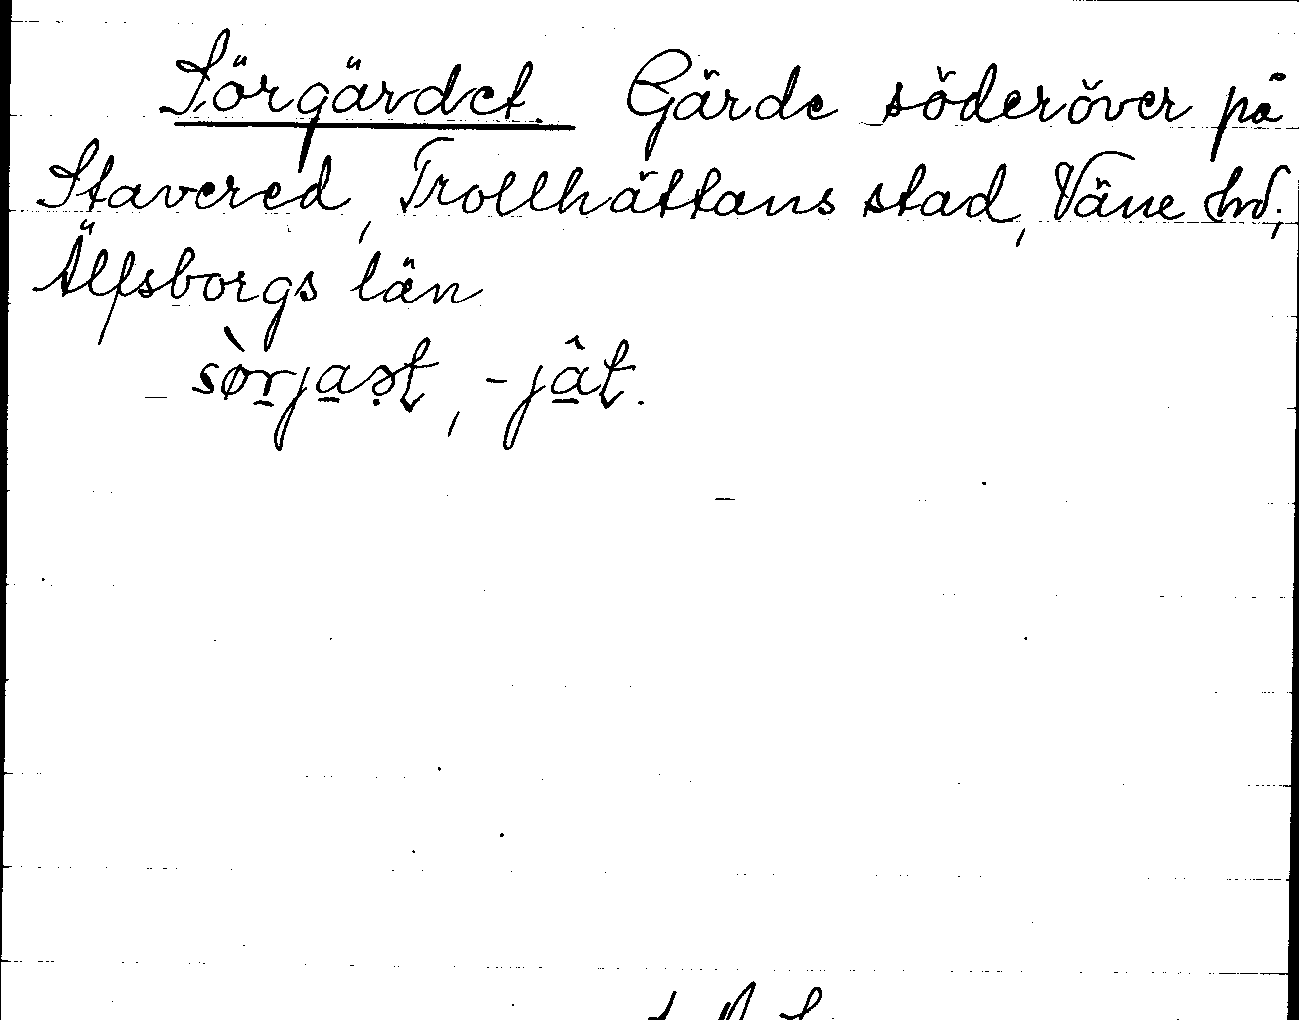 Sörgärdet. Gärde söderöver på
Stavered, Trollhättans stad, Väne hd,
Älfsborgs län
sòrjaət, -jât.